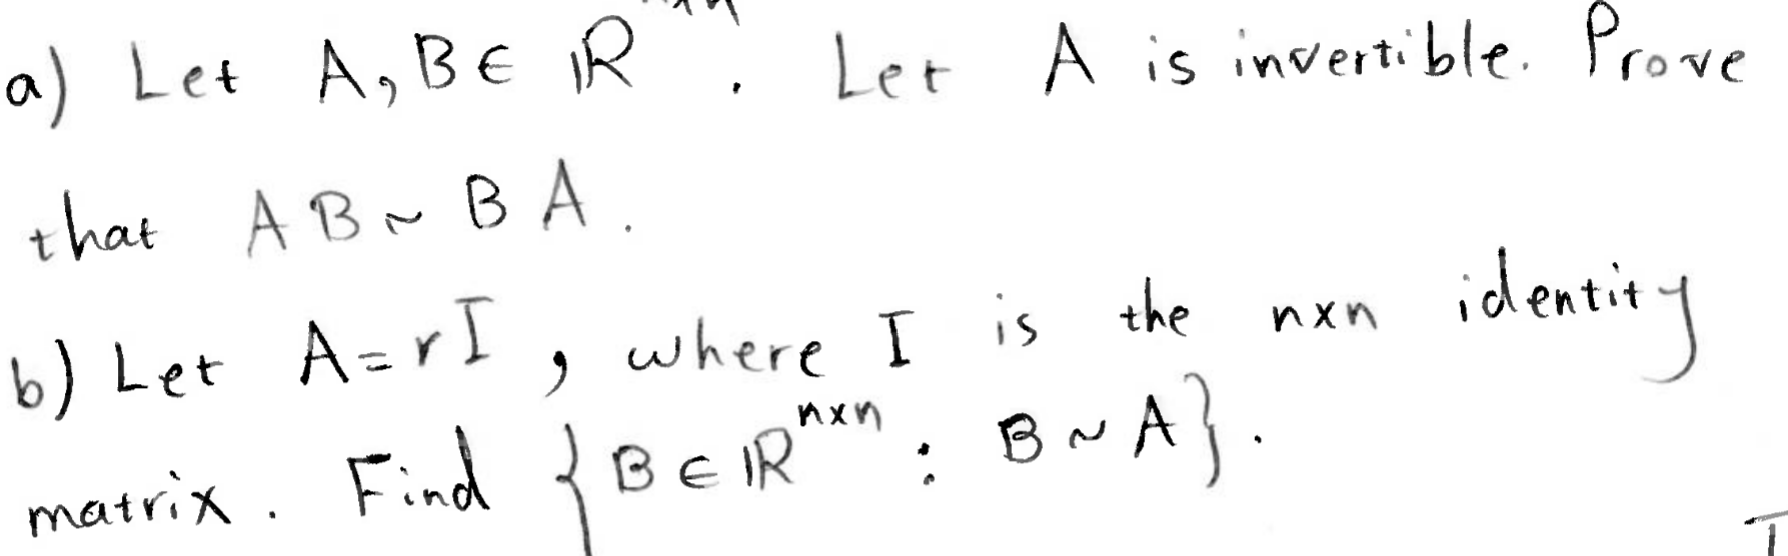 a) Let A, B ∈ ℝⁿˣⁿ. Let A is invertible. Prove
that AB ~ BA.
b) Let A = rI, where I is the nxn identity
matrix. Find {B ∈ ℝⁿˣⁿ : B ~ A}.